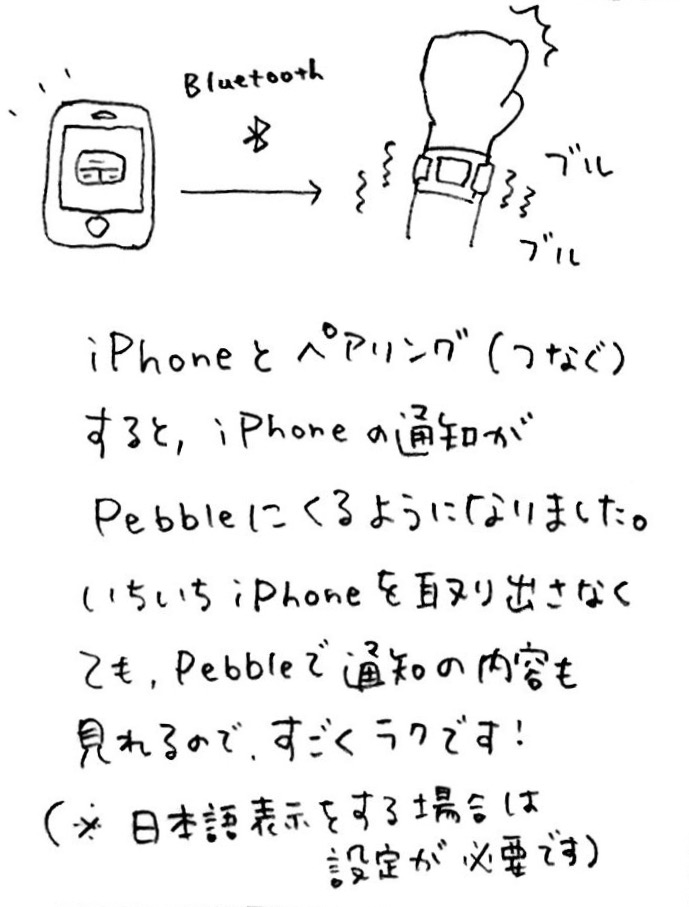 Bluetooth
ブル
ブル
iPhoneとペアリング(つなぐ)
すると,iPhoneの通知が
Pebbleにくるようになりました。
いちいちiPhoneを取り出さなく
ても,Pebbleで通知の内容も
見れるので、すごくラクです!
(※日本語表示をする場合は
設定が必要です)